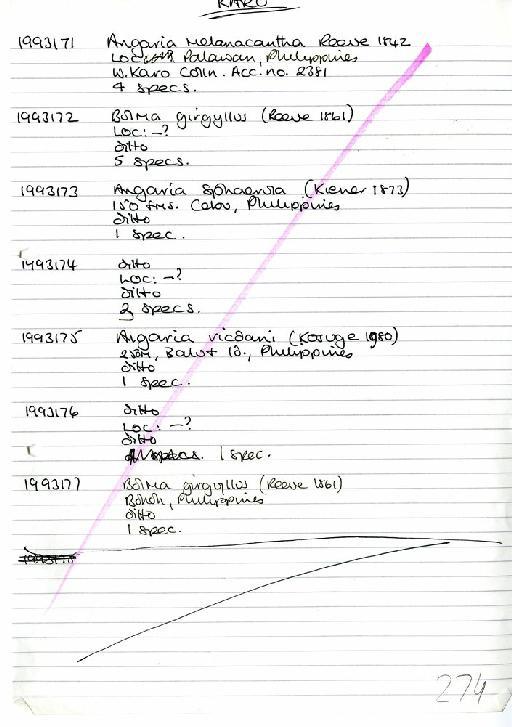 KARO
1993171 Angaria melanacantha Reeve 1842
Loc: Palawan, Philippines
W. Karo Colln. Acc. no. 2381
4 specs.
1993172 Bolma girgyllus (Reeve 1861)
Loc: -?
ditto
5 specs.
1993173 Angaria sphaerula (Kiener 1873)
150 fms. Cebu, Philippines
ditto
1 spec.
1993174 ditto
Loc: -?
ditto
3 specs.
1993175 Angaria vicdani (Kosuge 1980)
Balut Is., Philippines
ditto
1 spec.
1993176 ditto
Loc: -?
ditto
1 spec.
1993177 Bolma girgyllus (Reeve 1861)
Bohol, Philippines
ditto
1 spec.
274